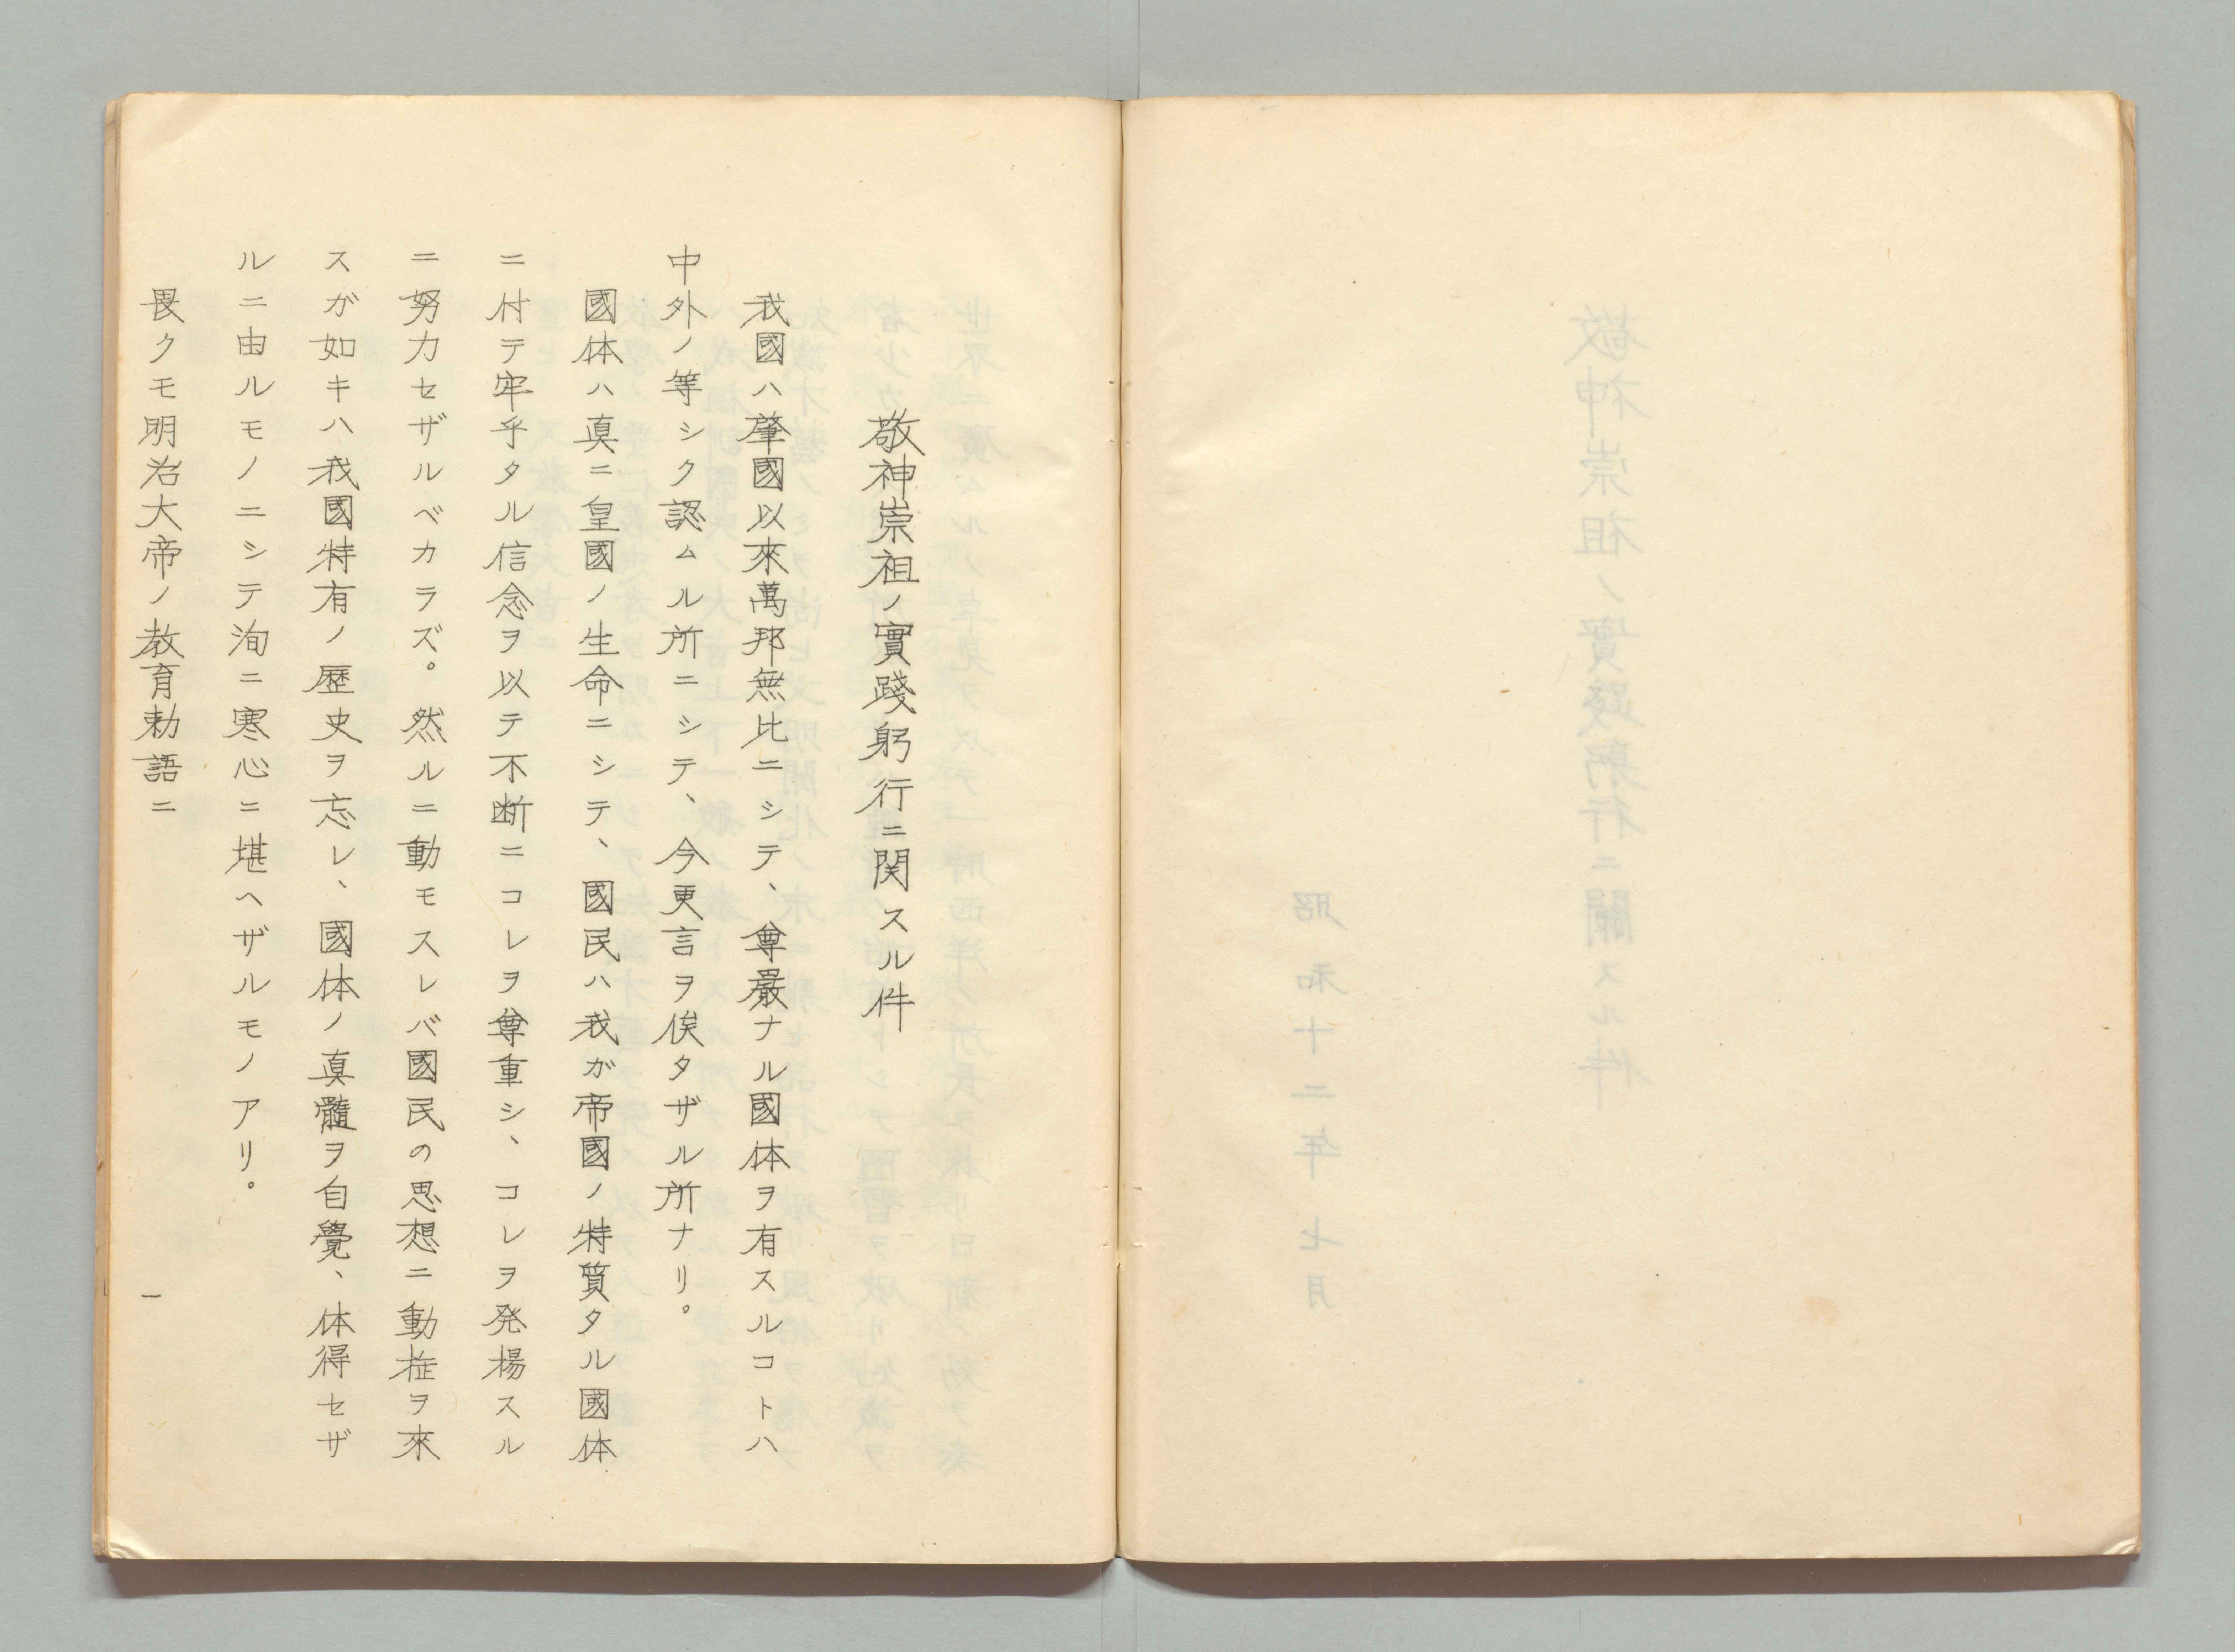 敬神崇祖ノ實踐躬行ニ関スル件
我國ハ肇國以來萬邦無比ニシテ、尊嚴ナル國体ヲ有スルコトハ
中外ノ等シク認ムル所ニシテ、今更言ヲ俟タザル所ナリ。
國体ハ真ニ皇國ノ生命ニシテ、國民ハ我ガ帝國ノ特質タル國体
ニ付テ牢乎タル信念ヲ以テ不断ニコレヲ尊重シ、コレヲ発楊スル
ニ努力セザルベカラズ。然ルニ動モスレバ國民の思想ニ動ヲ來
スガ如キハ我國特有ノ歷史ヲ忘レ、國体ノ真髓ヲ自覺、体得セザ
ルニ由ルモノニシテ洵ニ寒心ニ堪ヘザルモノアリ。
畏クモ明治大帝ノ教育勅語ニ
一